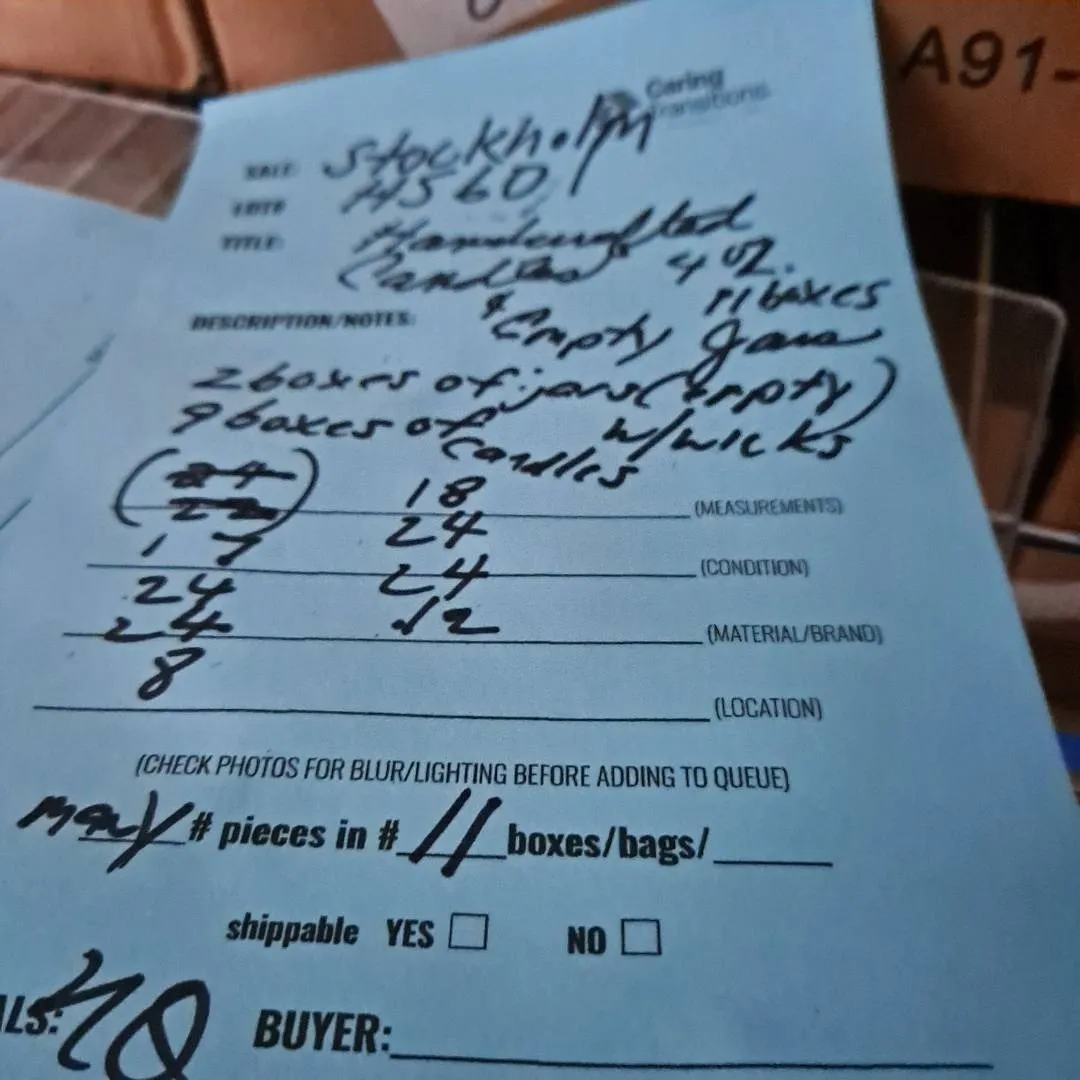 A91-
Caring
Transitions
SALE: Stockholm
LOT# HS60
TITLE: Handcrafted
Candles 4 oz.
11 boxes
& Empty Jars
DESCRIPTION/NOTES:
2 boxes of jars (Empty)
9 boxes of candles w/wicks
18
(MEASUREMENTS)
17 24
(CONDITION)
24 24
24 12
(MATERIAL/BRAND)
8
(LOCATION)
(CHECK PHOTOS FOR BLUR/LIGHTING BEFORE ADDING TO QUEUE)
many # pieces in # 11 boxes/bags/
shippable YES NO
ALS:
BUYER: